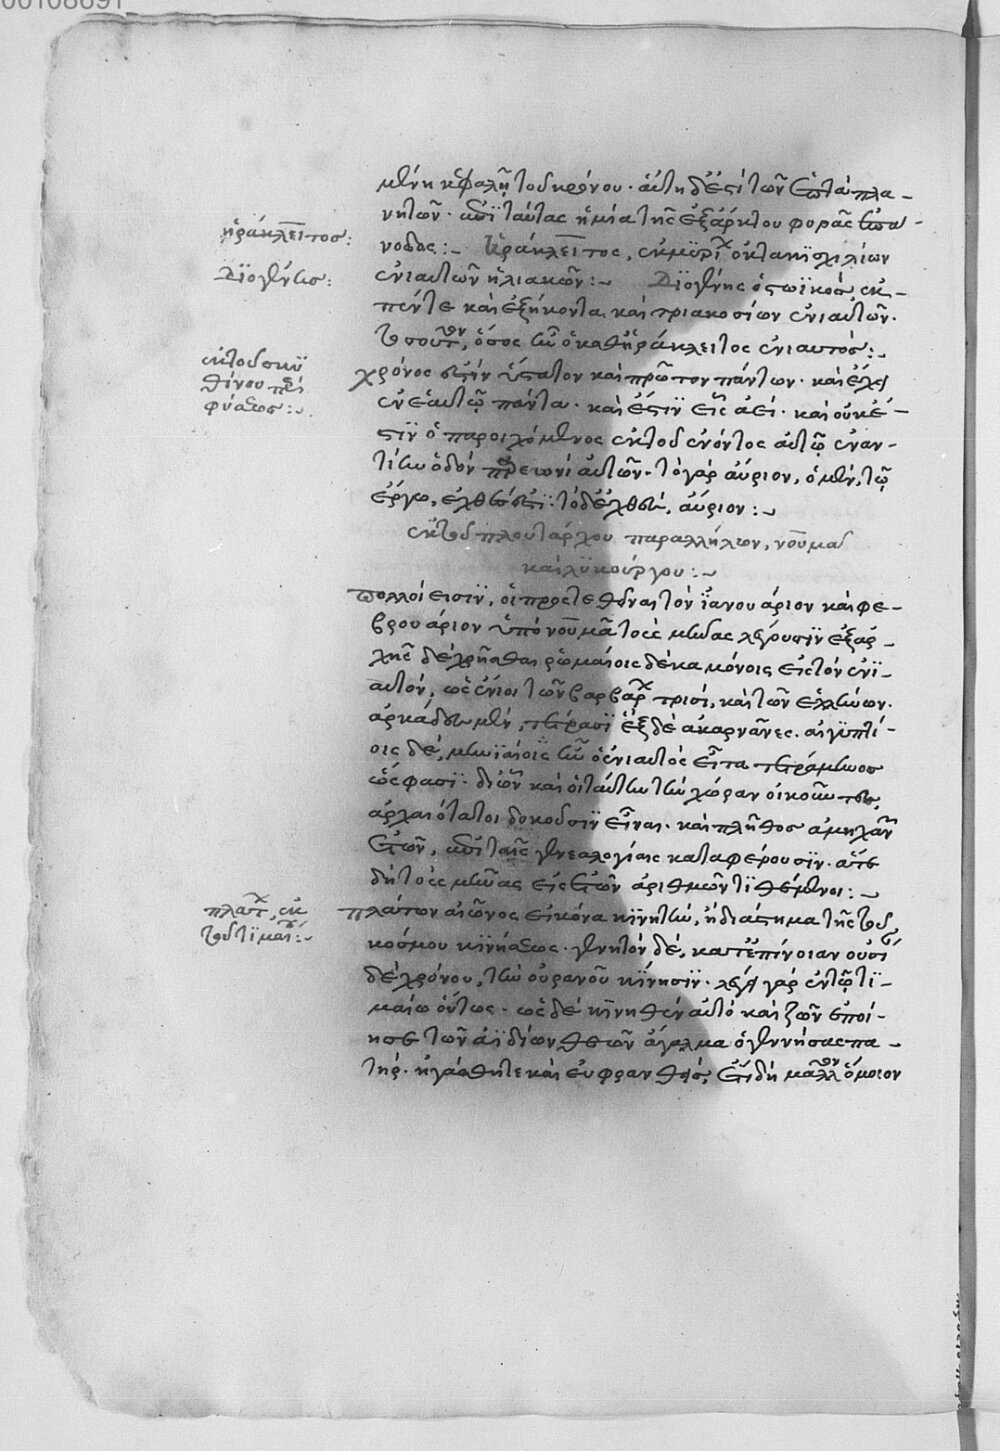 00108691
μένη κεφαλῆ τοῦ κρόνου· αὕτη δέ ἐστὶ τῶν ἑπτὰ πλα-
νητῶν· ἐπὶ ταύτας ἡμία τῆς ἐξ ἀρκτου φορᾶς ἐπα-
νοδος:- Ἡράκλειτος, ἐκ μυρι οκτακισχιλίων
ἐνιαυτῶν ἡλιακῶν:- Διογένης ὁ στωϊκός, ἐκ-
πέντε καὶ ἑξήκοντα καὶ τριακοσίων ἐνιαυτῶν·
τοσούτων, ὅσος ἦν ὁ καθ' Ἡράκλειτος ἐνιαυτός:-
χρόνος ἐστὶν ὕστατον καὶ πρῶτον πάντων· καὶ ἔχει
ἐν ἑαυτῷ πάντα· καὶ ἔστιν εἷς ἀεὶ· καὶ οὐκ ἔ-
στιν ὁ παροιχόμενος ἐκ τοῦ ἐνόντος αὐτῷ ἐναν-
τίην ὁδὸν αὐτῶν· τὸ γὰρ αὔριον, ὁ μὲν, τῷ
ἔργῳ, ἐχθές ἐστι· τὸ δὲ ἐχθές, αὔριον:-
ἐκ τοῦ πλουτάρχου παραλλήλων, νουμᾶ
καὶ λυκούργου:-
πολλοί εἰσιν, οἳ προστεθῆναι τὸν ἰανουάριον καὶ φε-
βρουάριον ὑπὸ νουμᾶ τοὺς μῆνας λέγουσιν ἐξ ἀρ-
χῆς δὲ χρῆσθαι ῥωμαίοις δέκα μόνοις εἰς τὸν ἐνι-
αυτόν, ὡς ἔνιοι τῶν βαρβάρ τρισί, καὶ τῶν ἑλλήνων.
ἀρκάδες μὲν, τέτρασι ἓξ δὲ ἀκαρνᾶνες. αἰγυπτί-
οις δὲ, μηνιαῖος ἦν ὁ ἐνιαυτὸς εἶτα τετράμηνος
ὥς φασι· διὸ καὶ οἱ ταύτην τὴν χώραν οἰκοῦντες,
ἀρχαιότατοι δοκοῦσιν εἶναι· καὶ πλῆθος ἀμήχαν
ἐτῶν, ἐπὶ ταῖς γενεαλογίαις καταφέρουσιν· ἅτε
δὴ τοὺς μῆνας εἰς ἐτῶν ἀριθμῶν τιθέμενοι:-
πλάτων αἰῶνος εἰκόνα κινητὴν, ἢ διάστημα τῆς τοῦ
κόσμου κινήσεως· γενητὸν δὲ, κατ' ἐπίνοιαν οὐσί
δὲ χρόνου, τὴν οὐρανοῦ κίνησιν· λέγει γὰρ ἐν τῷ τι-
μαίῳ οὕτως· ὡς δὲ κινηθὲν αὐτὸ καὶ ζῶν ἐποί-
ησε τῶν ἀϊδίων θεῶν ἄγαλμα ὁ γεννήσας πα-
τήρ· ἠγάσθη τε καὶ εὐφρανθεὶς, ἔτι δὴ μᾶλλον ὅμοιον
ἡράκλειτος:
Διογένης:
ἐκ τοῦ σκυ
θίνου περὶ
φύσεως:-
πλάτ, ἐκ
τοῦ τιμαί:-